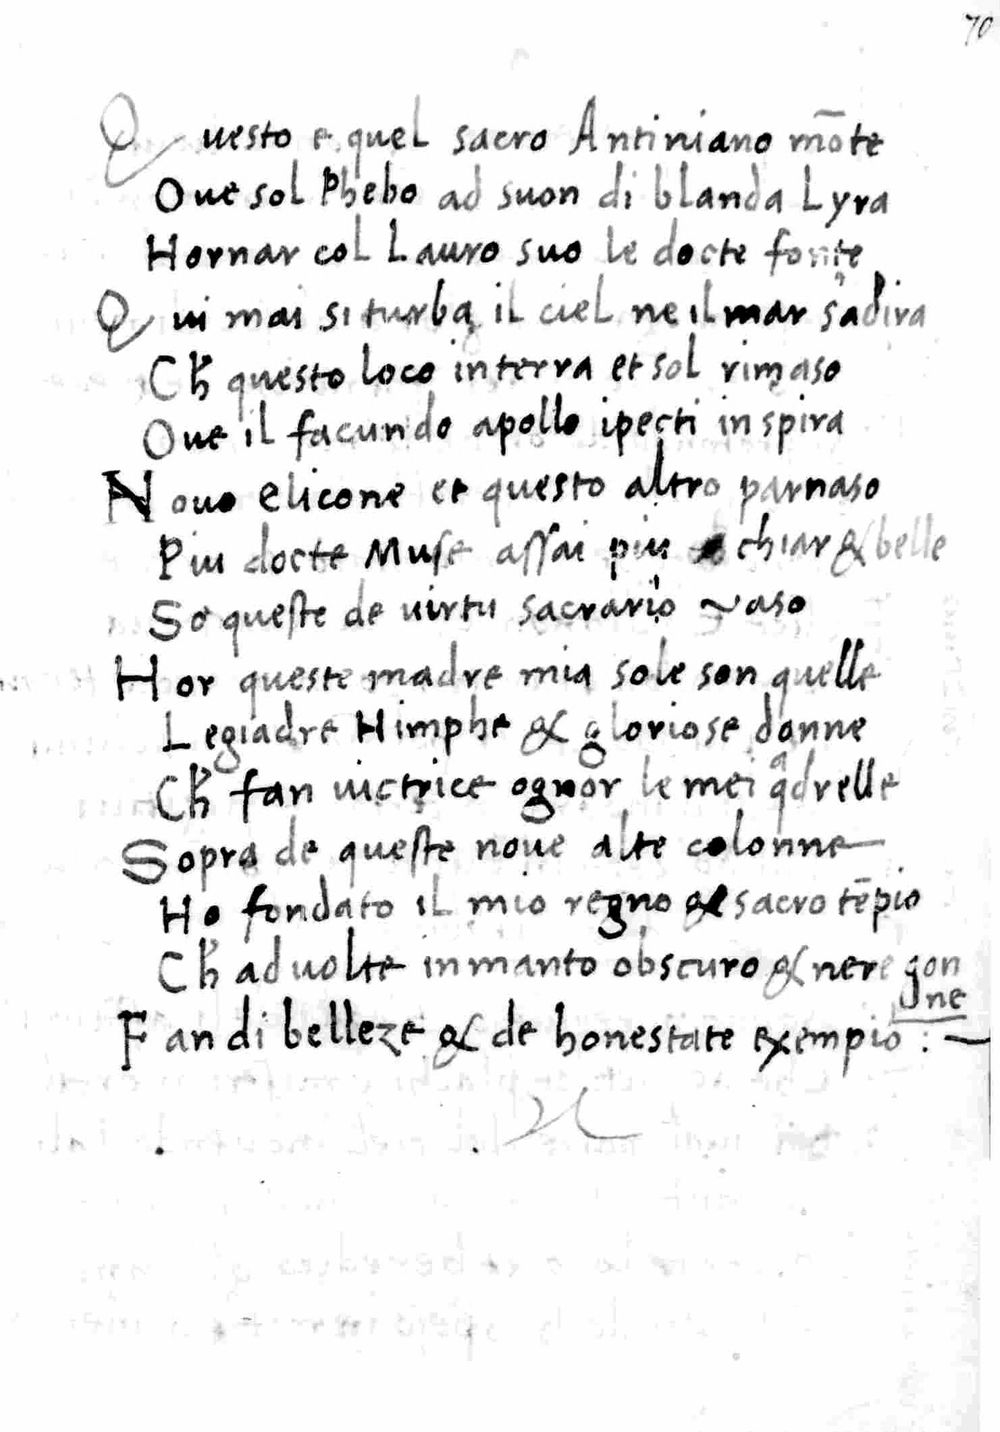 70
Questo e quel sacro Antiniano mōte
Oue sol Phebo ad suon di blanda Lyra
Hornar col Lauro suo le docte fonte
Qui mai si turba il ciel ne il mar s'adira
Ch̄ questo loco in terra et sol rimaso
Oue il facundo apollo ipecti inspira
Nouo elicone et questo altro parnaso
Piu docte Muse assai piu chiar & belle
So queste de uirtu sacrario uaso
Hor queste madre mia sole son quelle
Legiadre Nimphe & gloriose donne
Ch̄ fan uictrice ognor le mei qdrelle
Sopra de queste noue alte colonne
Ho fondato il mio regno & sacro tēpio
Ch̄ ad uolte in manto obscuro & nere gon
ne
Fan di belleze & de honestate exempio :~